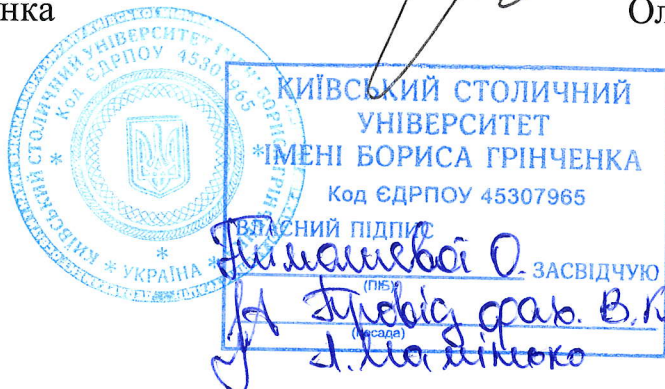 нка
Ол
КИЇВСЬКИЙ СТОЛИЧНИЙ УНІВЕРСИТЕТ ІМЕНІ БОРИСА ГРІНЧЕНКА
* УКРАЇНА *
Код ЄДРПОУ 45307965
КИЇВСЬКИЙ СТОЛИЧНИЙ
УНІВЕРСИТЕТ
ІМЕНІ БОРИСА ГРІНЧЕНКА
Код ЄДРПОУ 45307965
ВЛАСНИЙ ПІДПИС
О. ЗАСВІДЧУЮ
(ПІБ)
Провід фах. В.К
(посада)